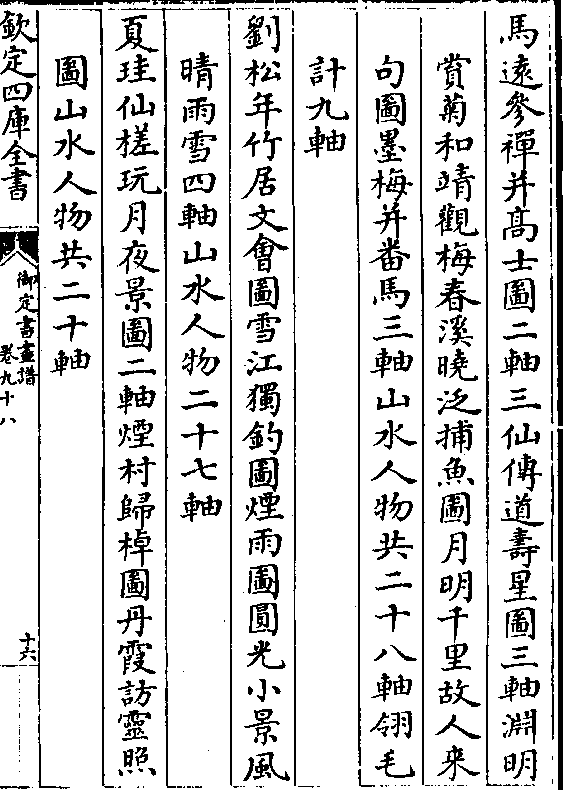 馬逺參禪并髙士圖二軸三仙傳道壽星圖三軸淵明
賞菊和靖觀梅春溪曉泛捕魚圖月明千里故人来
句圖墨梅并番馬三軸山水人物共二十八軸翎毛
計九軸
劉松年竹居文會圖雪江獨釣圖煙雨圖圓光小景風
晴雨雪四軸山水人物二十七軸
夏珪仙槎玩月夜景圖二軸煙村歸棹圖丹霞訪靈照
圖山水人物共二十軸
欽定四庫全書
御定書畫譜
卷九十八
十六